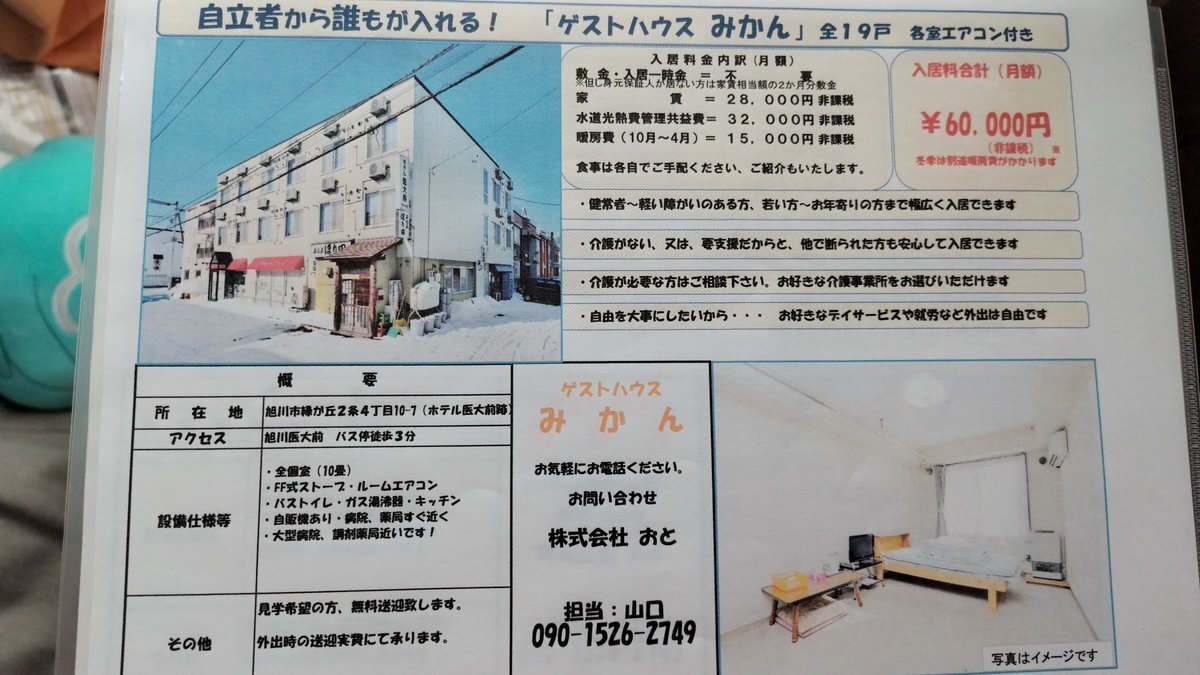 自立者から誰もが入れる！ 「ゲストハウス みかん」 全１９戸 各室エアコン付き
入居料金内訳（月額）
敷金・入居一時金 ＝ 不 要
※但し身元保証人が居ない方は家賃相当額の２か月分敷金
家 賃 ＝ ２８，０００円 非課税
水道光熱費管理共益費＝ ３２，０００円 非課税
暖房費（１０月～４月）＝ １５，０００円 非課税
食事は各自でご手配ください、ご紹介もいたします。
入居料合計（月額）
￥６０，０００円
（非課税） ※
冬季は別途暖房費がかかります
・健常者～軽い障がいのある方、若い方～お年寄りの方まで幅広く入居できます
・介護がない、又は、要支援だからと、他で断られた方も安心して入居できます
・介護が必要な方はご相談下さい。お好きな介護事業所をお選びいただけます
・自由を大事にしたいから・・・ お好きなデイサービスや就労など外出は自由です
概 要
所 在 地 旭川市緑が丘２条４丁目10-7（ホテル医大前跡）
アクセス 旭川医大前 バス停徒歩３分
設備仕様等
・全個室（10畳）
・FF式ストーブ・ルームエアコン
・バストイレ・ガス湯沸器・キッチン
・自販機あり・病院、薬局すぐ近く
・大型病院、調剤薬局近いです！
その他
見学希望の方、無料送迎致します。
外出時の送迎実費にて承ります。
ゲストハウス
み か ん
お気軽にお電話ください。
お問い合わせ
株式会社 おと
担当：山口
090-1526-2749
写真はイメージです